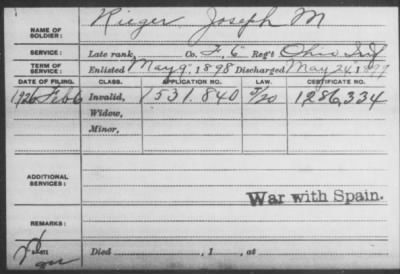 NAME OF SOLDIER: Rieger Joseph M
SERVICE: Late rank, Co. F, 6" Reg't Ohio Inf
TERM OF SERVICE: Enlisted May 9", 1898 Discharged May 24, 1899
DATE OF FILING. CLASS. APPLICATION NO. LAW. CERTIFICATE NO.
1926 Feb 6 Invalid, 1531.840 J/20 1286,334
Widow,
Minor,
ADDITIONAL SERVICES:
War with Spain.
REMARKS:
Died , 1 , at